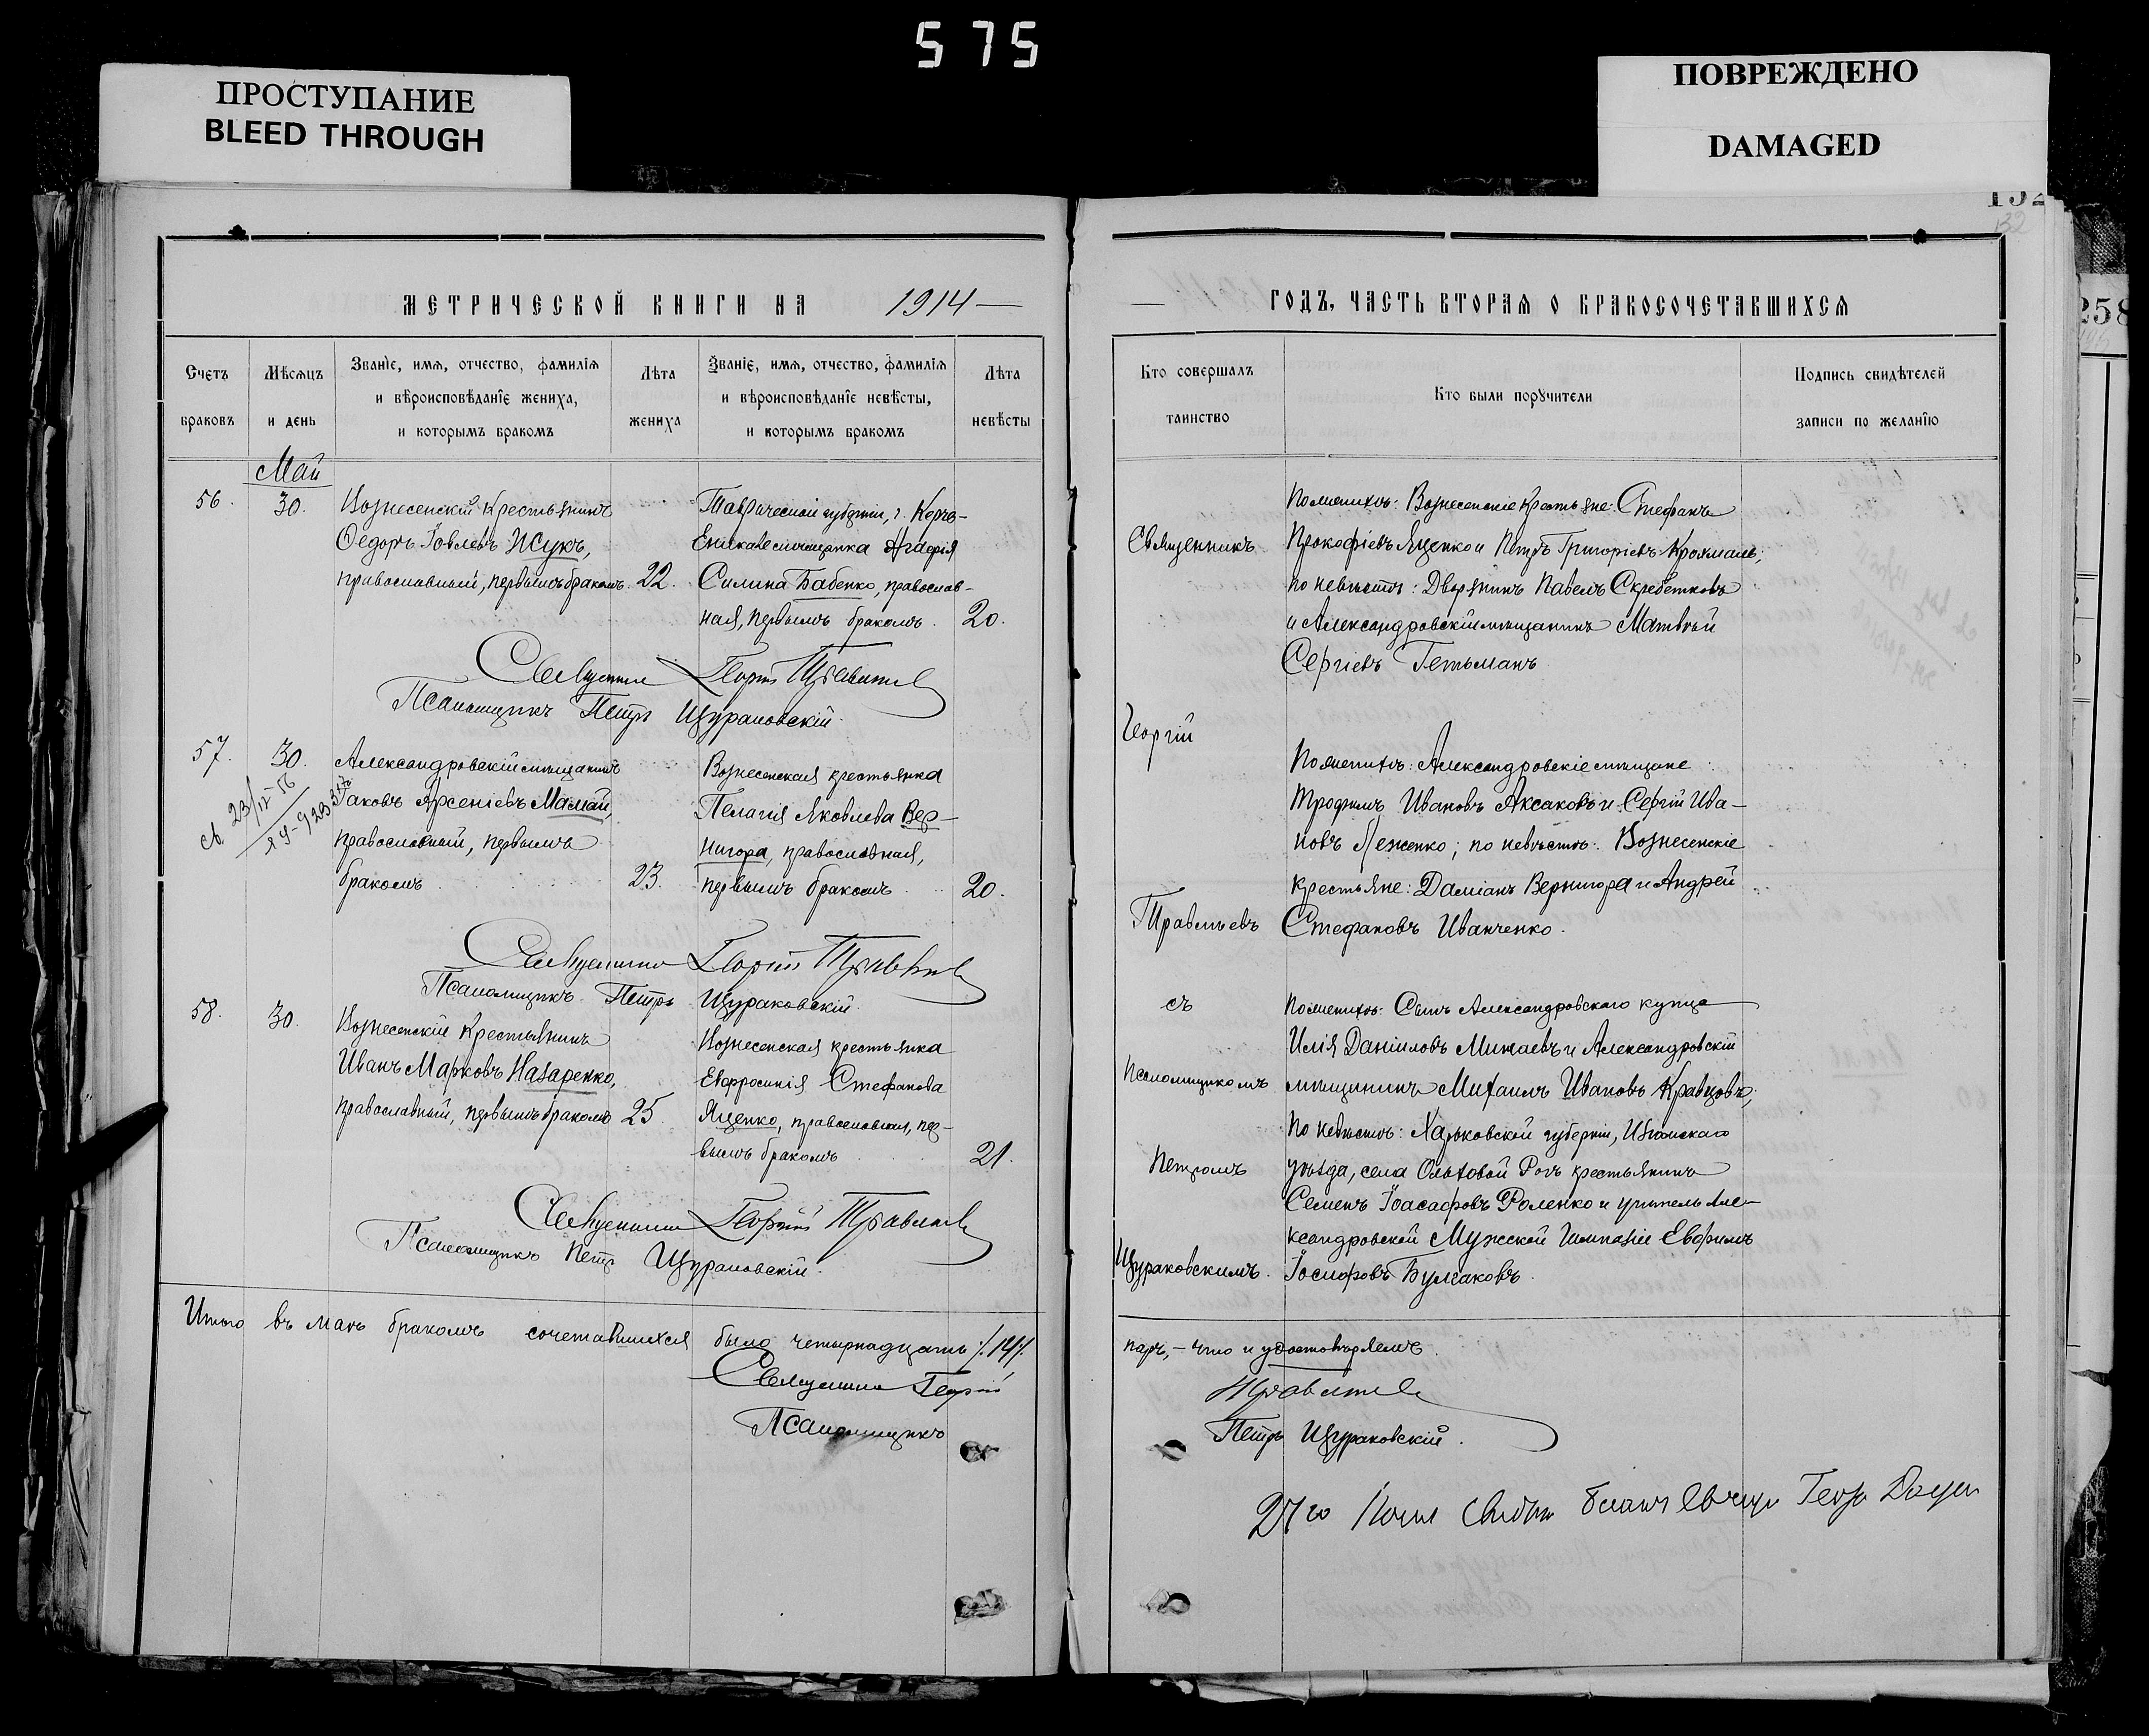 575
ПРОСТУПАНИЕ
BLEED THROUGH
ПОВРЕЖДЕНО
DAMAGED
132
258
МЕТРИЧЕСКОЙ КНИГИ НА 1914
Счетъ браковъ
Мѣсяцъ и день
Званіе, имя, отчество, фамилія
и вѣроисповѣданіе жениха,
и которымъ бракомъ
Лѣта жениха
Званіе, имя, отчество, фамилія
и вѣроисповѣданіе невѣсты,
и которымъ бракомъ
Лѣта невѣсты
Май
56. 30.
Вознесенскій крестьянинъ
Ѳедоръ Іовлевъ Жукъ,
православный, первымъ бракомъ. 22.
Таврической губерніи, г. Керчь-
Еникале мѣщанка Агафія
Силина Бабенко, православ-
ная, первымъ бракомъ. 20.
Священникъ Георгій Травлѣевъ
Псаломщикъ Петръ Щураковскій.
57. 30.
Александровскій мѣщанинъ
Іаковъ Арсеніевъ Мамай,
православный, первымъ
бракомъ 23.
Вознесенская крестьянка
Пелагія Яковлева Вер-
нигора, православная,
первымъ бракомъ 20.
Священникъ Георгій
Псаломщикъ Петръ Щураковскій.
58. 30.
Вознесенскій крестьянинъ
Иванъ Марковъ Назаренко,
православный, первымъ бракомъ 25.
Вознесенская крестьянка
Евфросинія Стефанова
Яценко, православная, пер-
вымъ бракомъ 21.
Священникъ Георгій
Псаломщикъ Петръ Щураковскій.
Итого въ маѣ бракомъ сочетавшихся было четырнадцать /.14/.
Священникъ Георгій
Псаломщикъ
ГОДЪ, ЧАСТЬ ВТОРАЯ О БРАКОСОЧЕТАВШИХСЯ
Кто совершалъ таинство
Кто были поручители
Подпись свидѣтелей записи по желанію
Священникъ
Георгій
съ
Псаломщикомъ
Петромъ
Щураковскимъ.
По женихѣ: Вознесенскіе крестьяне: Стефанъ
Прокофіевъ Яценко и Петръ Григоріевъ Крохмаль;
по невѣстѣ: Дворянинъ Павелъ Скребетковъ
и Александровскій мѣщанинъ Матвѣй
Сергіевъ Гетьманъ.
По женихѣ: Александровскіе мѣщане:
Трофимъ Ивановъ Аксаковъ и Сергій Ива-
новъ Леженко; по невѣстѣ: Вознесенскіе
крестьяне: Даміанъ Вернигора и Андрей
Стефановъ Иванченко.
По женихѣ: Сынъ Александровскаго купца
Илія Даніиловъ Минаевъ и Александровскій
мѣщанинъ Михаилъ Ивановъ Кравцовъ;
По невѣстѣ: Харьковской губерніи, Изюмскаго
уѣзда, села Ольховой Рогъ крестьянинъ
Семенъ Іоасафовъ Роленко и учитель Але-
ксандровской Мужской Гимназіи Евфимъ
Іосифовъ Булгаковъ.
паръ, – что и удостовѣряемъ.
Петръ Щураковскій.